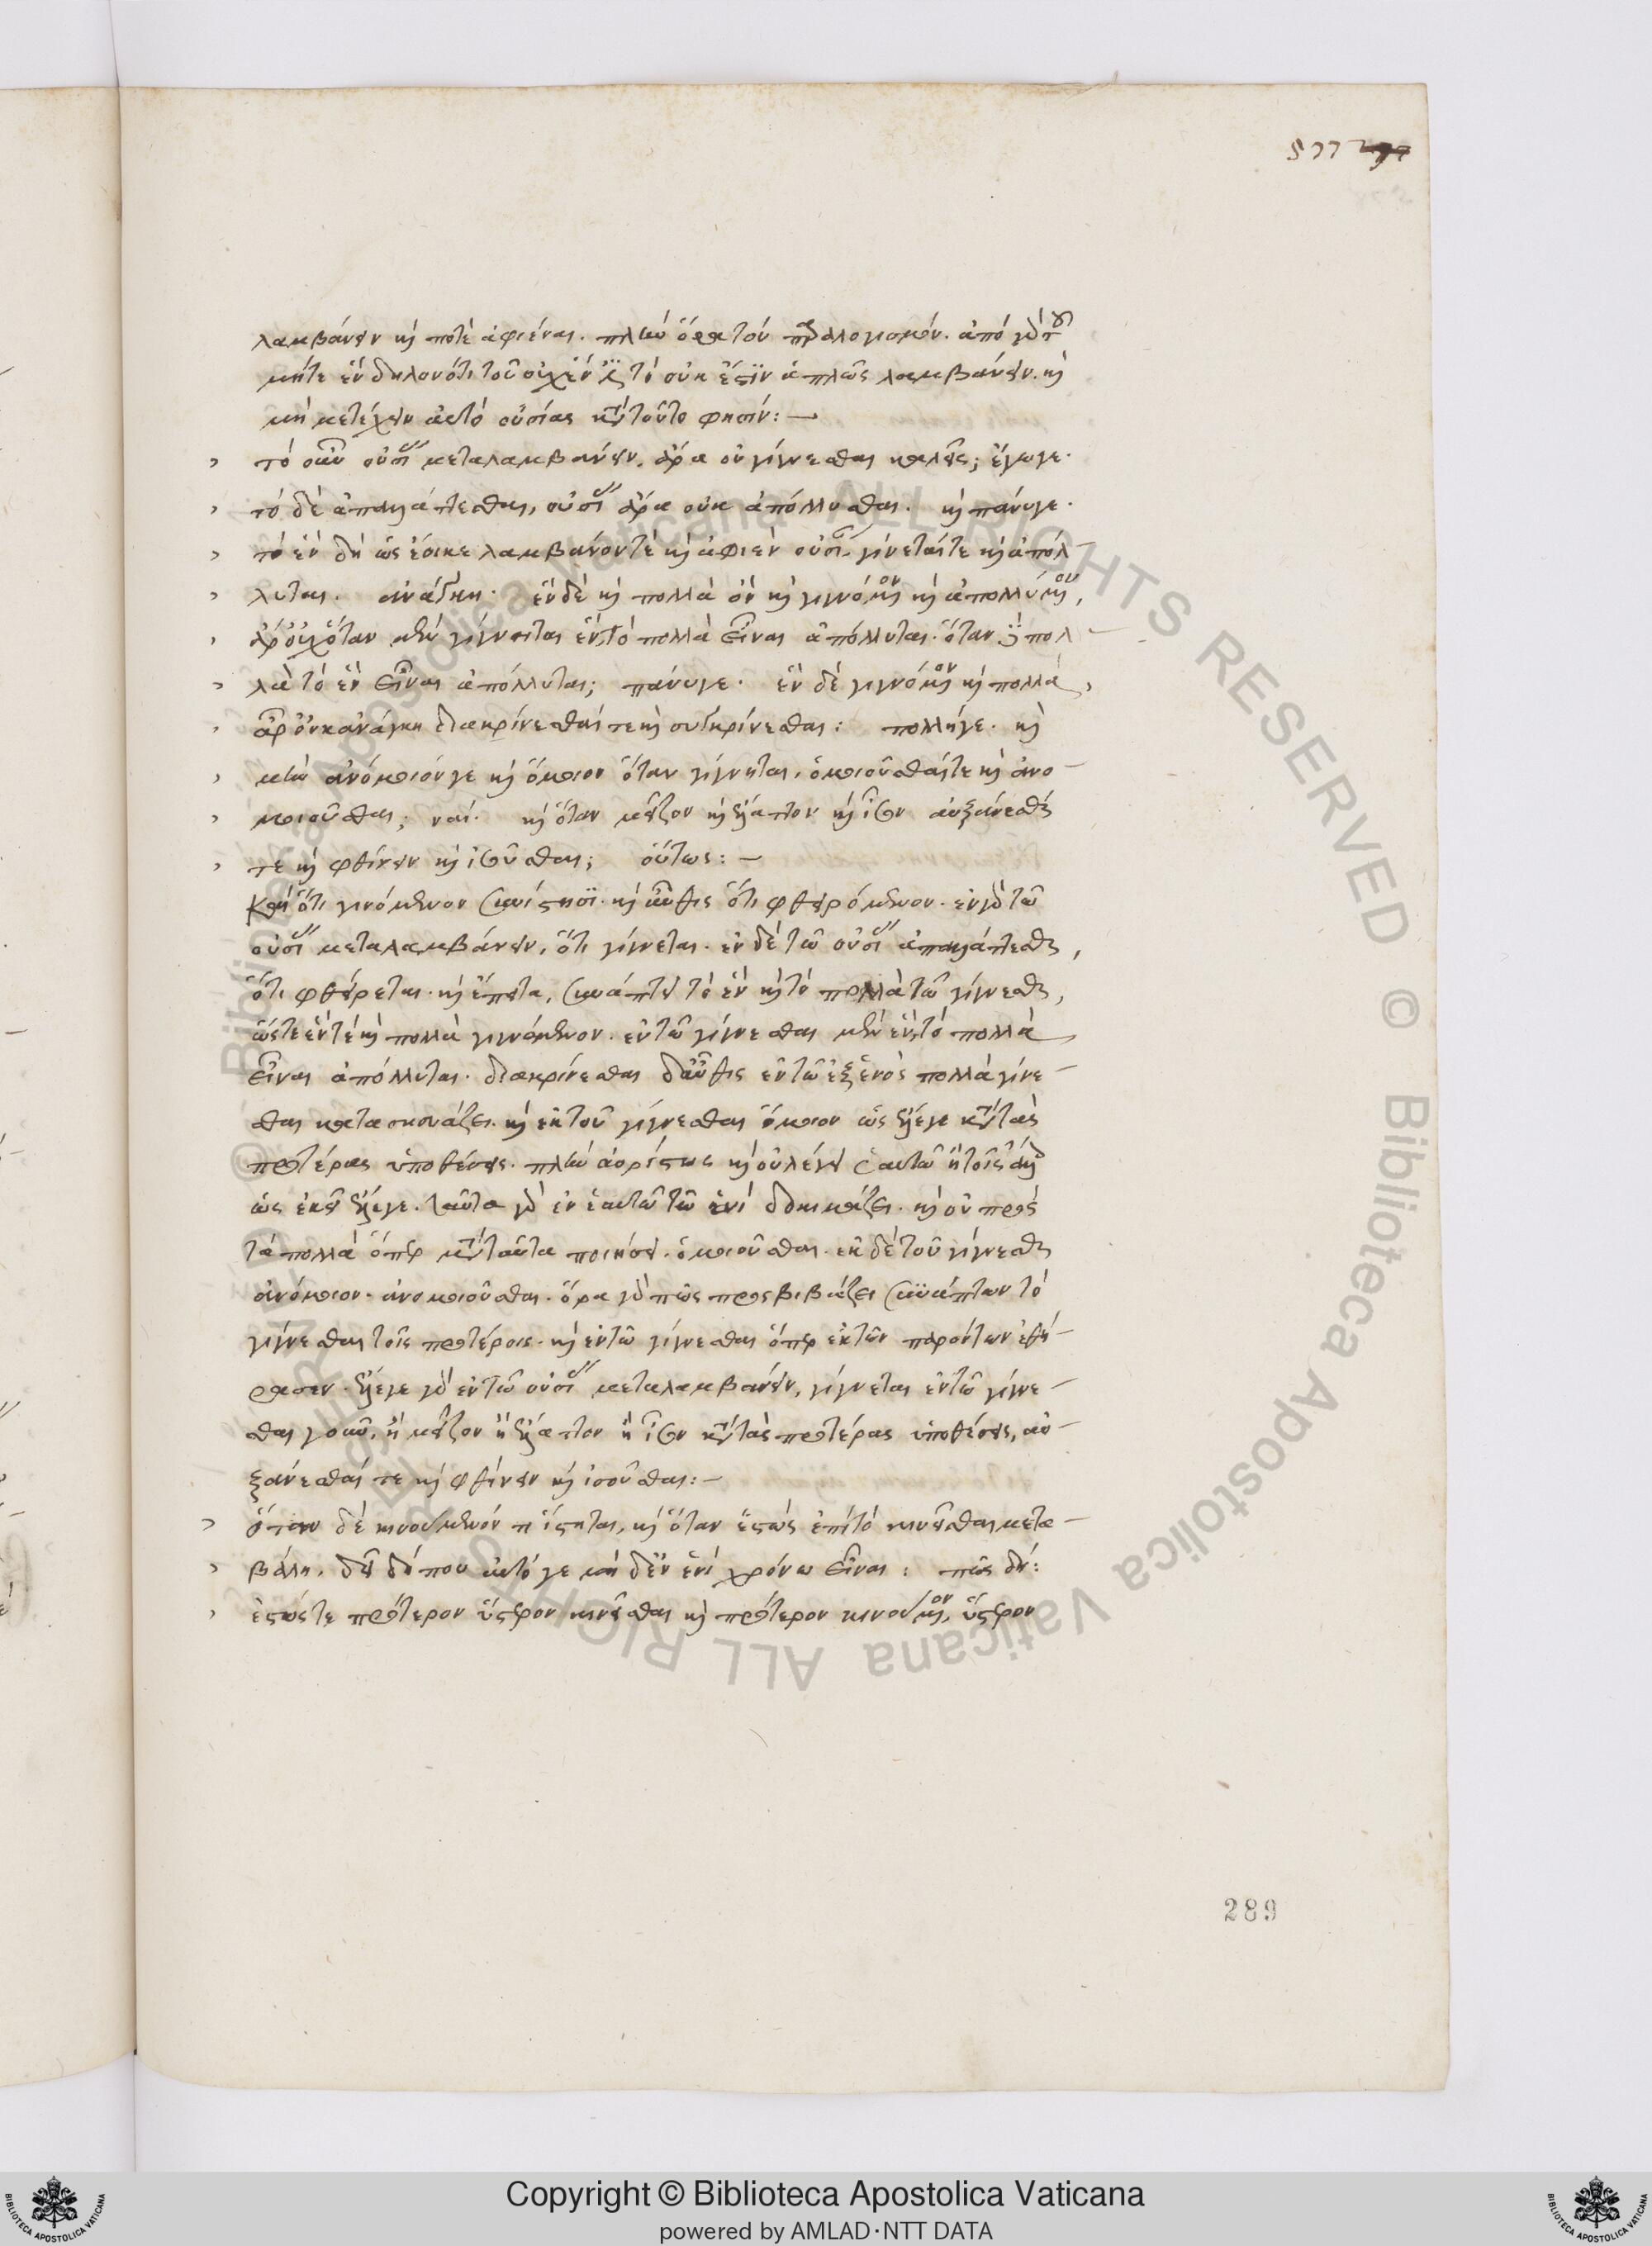 577
λαμβάνειν καὶ ποτὲ ἀφιέναι. πλὴν ὅρα τὸν παραλογισμόν. ἀπὸ γὰρ τοῦ
μήτε ἓν δηλονότι τοῦ οὐχ ἓν ἐστὶ τὸ οὐκ ἔστιν ἁπλῶς λαμβάνειν. καὶ
μὴ μετέχειν αὐτὸ οὐσίας κατὰ τοῦτο φησίν: —
τὸ οὖν οὐσίας μεταλαμβάνειν. ἆρα οὐ γίγνεσθαι καλεῖς; ἔγωγε.
τὸ δὲ ἀπαλλάττεσθαι, οὐσίας ἆρα οὐκ ἀπόλλυσθαι. καὶ πάνυγε.
τὸ ἓν δὴ ὡς ἔοικε λαμβάνον τὲ καὶ ἀφιὲν οὐσίαν γίνεταί τε καὶ ἀπόλ-
λυται. ἀνάγκη. ἓν δὲ καὶ πολλὰ ὂν καὶ γιγνόμενον καὶ ἀπολλύμενον,
ἆρ' οὐχ ὅταν μὲν γίγνηται ἓν, τὸ πολλὰ εἶναι ἀπόλλυται. ὅταν δὲ πολ-
λὰ τὸ ἓν εἶναι ἀπόλλυται; πάνυγε. ἓν δὲ γιγνόμενον καὶ πολλὰ,
ἆρ' οὐκ ἀνάγκη διακρίνεσθαί τε καὶ συγκρίνεσθαι: πολλήγε. καὶ
μὴν ἀνόμοιόν γε καὶ ὅμοιον ὅταν γίγνηται, ὁμοιοῦσθαί τε καὶ ἀνο-
μοιοῦσθαι; ναί. καὶ ὅταν μεῖζον καὶ ἔλαττον καὶ ἶσον αὐξάνεσθαί
τε καὶ φθίνειν καὶ ἰσοῦσθαι; οὕτως: —
καὶ ὅτι γινόμενον συνίστησι. καὶ αὖθις ὅτι φθειρόμενον. ἐν γὰρ τῶ
οὐσίας μεταλαμβάνειν, ὅτι γίγνεται. ἐν δὲ τῶ οὐσίας ἀπαλλάττεσθαι,
ὅτι φθείρεται. καὶ ἔπειτα, συνάπτει τὸ ἓν καὶ τὸ πολλὰ τῶ γίγνεσθαι,
ὥστε ἕν τὲ καὶ πολλὰ γιγνόμενον. ἐν τῶ γίγνεσθαι μὲν ἓν, τὸ πολλὰ
εἶναι ἀπόλλυται. διακρίνεσθαι δ' αὖθις ἐν τῶ ἐξ ἑνὸς πολλὰ γίνε-
σθαι κατασκευάζει. καὶ ἐκ τοῦ γίγνεσθαι ὅμοιον ὡς ἔλεγε κατὰ τὰς
προτέρας ὑποθέσεις. πλὴν ἀορίστως καὶ οὐ λέγει ἑαυτῶ ἢ τοῖς ἄλλοις
ὡς ἐκεῖ ἔλεγε. ταῦτα γὰρ ἐν ἑαυτῶ τῶ ἑνὶ δοκιμάζει. καὶ οὐ πρὸς
τὰ πολλὰ ὅπερ μετὰ ταῦτα ποιήσει. ὁμοιοῦσθαι. ἐκ δὲ τοῦ γίγνεσθαι
ἀνόμοιον. ἀνομοιοῦσθαι. ὅρα γὰρ πῶς προσβιβάζει συνάπτων τὸ
γίγνεσθαι τοῖς προτέροις. καὶ ἐν τῶ γίγνεσθαι ὅπερ ἐκ τῶν παρόντων ἐθή-
ρασεν. ἔλεγε γὰρ ἐν τῶ οὐσίας μεταλαμβάνειν, γίγνεται ἐν τῶ γίγνε-
σθαι γοῦν, ἢ μεῖζον ἢ ἔλαττον ἢ ἶσον κατὰ τὰς προτέρας ὑποθέσεις, αὐ-
ξάνεσθαί τε καὶ φθίνειν καὶ ἰσοῦσθαι: —
ὅταν δὲ κινούμενόν τι ἵστηται, καὶ ὅταν ἑστὼς ἐπὶ τὸ κινεῖσθαι μετα-
βάλη, δεῖ δήπου αὐτό γε μὴ δ' ἐν ἑνὶ χρόνω εἶναι: πῶς δή:
ἑστώς τε πρότερον ὕστερον κινεῖσθαι καὶ πρότερον κινούμενον, ὕστερον
289
© Biblioteca Apostolica Vaticana ALL RIGHTS RESERVED
Copyright © Biblioteca Apostolica Vaticana
powered by AMLAD·NTT DATA